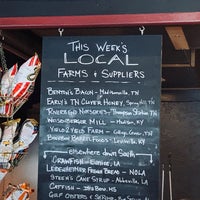 THIS WEEK'S
LOCAL
FARMS & SUPPLIERS
BENTON'S BACON - Madisonville, TN
EARLY'S TN CLOVER HONEY, Spring Hill, TN
NOBLE SPRINGS - Thompson Station, TN
WEISENBERGER MILL - Midway, KY
FARM - College Grove, TN
BOURBON BARREL FOODS - Louisville, KY
elsewhere down South
CRAWFISH - EUNICE, LA
LEIDENHEIMER FRENCH BREAD - NOLA
STEEN'S CANE SYRUP - Abbeville, LA
CATFISH -
GULF OYSTERS & SHRIMP